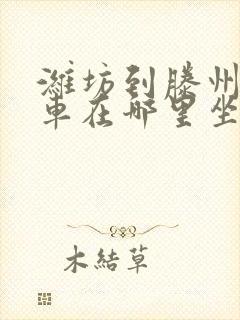 潍坊到滕州
車在哪里坐
木結草